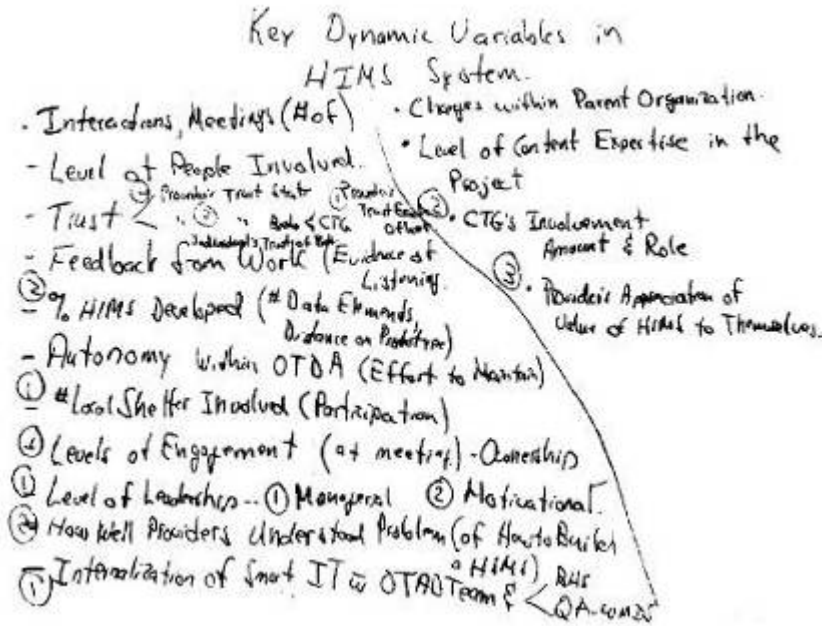 Key Dynamic Variables in
HIMS System.
- Interactions, Meetings (# of)
- Level of People Involved.
- Trust < ① Provider's Trust State ① Provider's
" ② " Trust
CTG
Individual's Trust of
- Feedback from Work (Evidence of
Listening.
② - % HIMS Developed (# Data Elements,
Distance on Prototype)
- Autonomy within OTDA (Effort to Maintain)
① - # Local Shelter Involved (Participation)
Levels of Engagement (at meeting) - Ownership
① Level of Leadership -- ① Managerial ② Motivational.
② How Well Providers Understood Problem (of How to Build
a HIMS)
① - Internalization of Smart IT in Team & < BHS
QA
• Changes within Parent Organization.
• Level of Content Expertise in the
Project
② • CTG's Involvement
Amount & Role
③ • Provider's Appreciation of
Value of HIMS to Themselves.